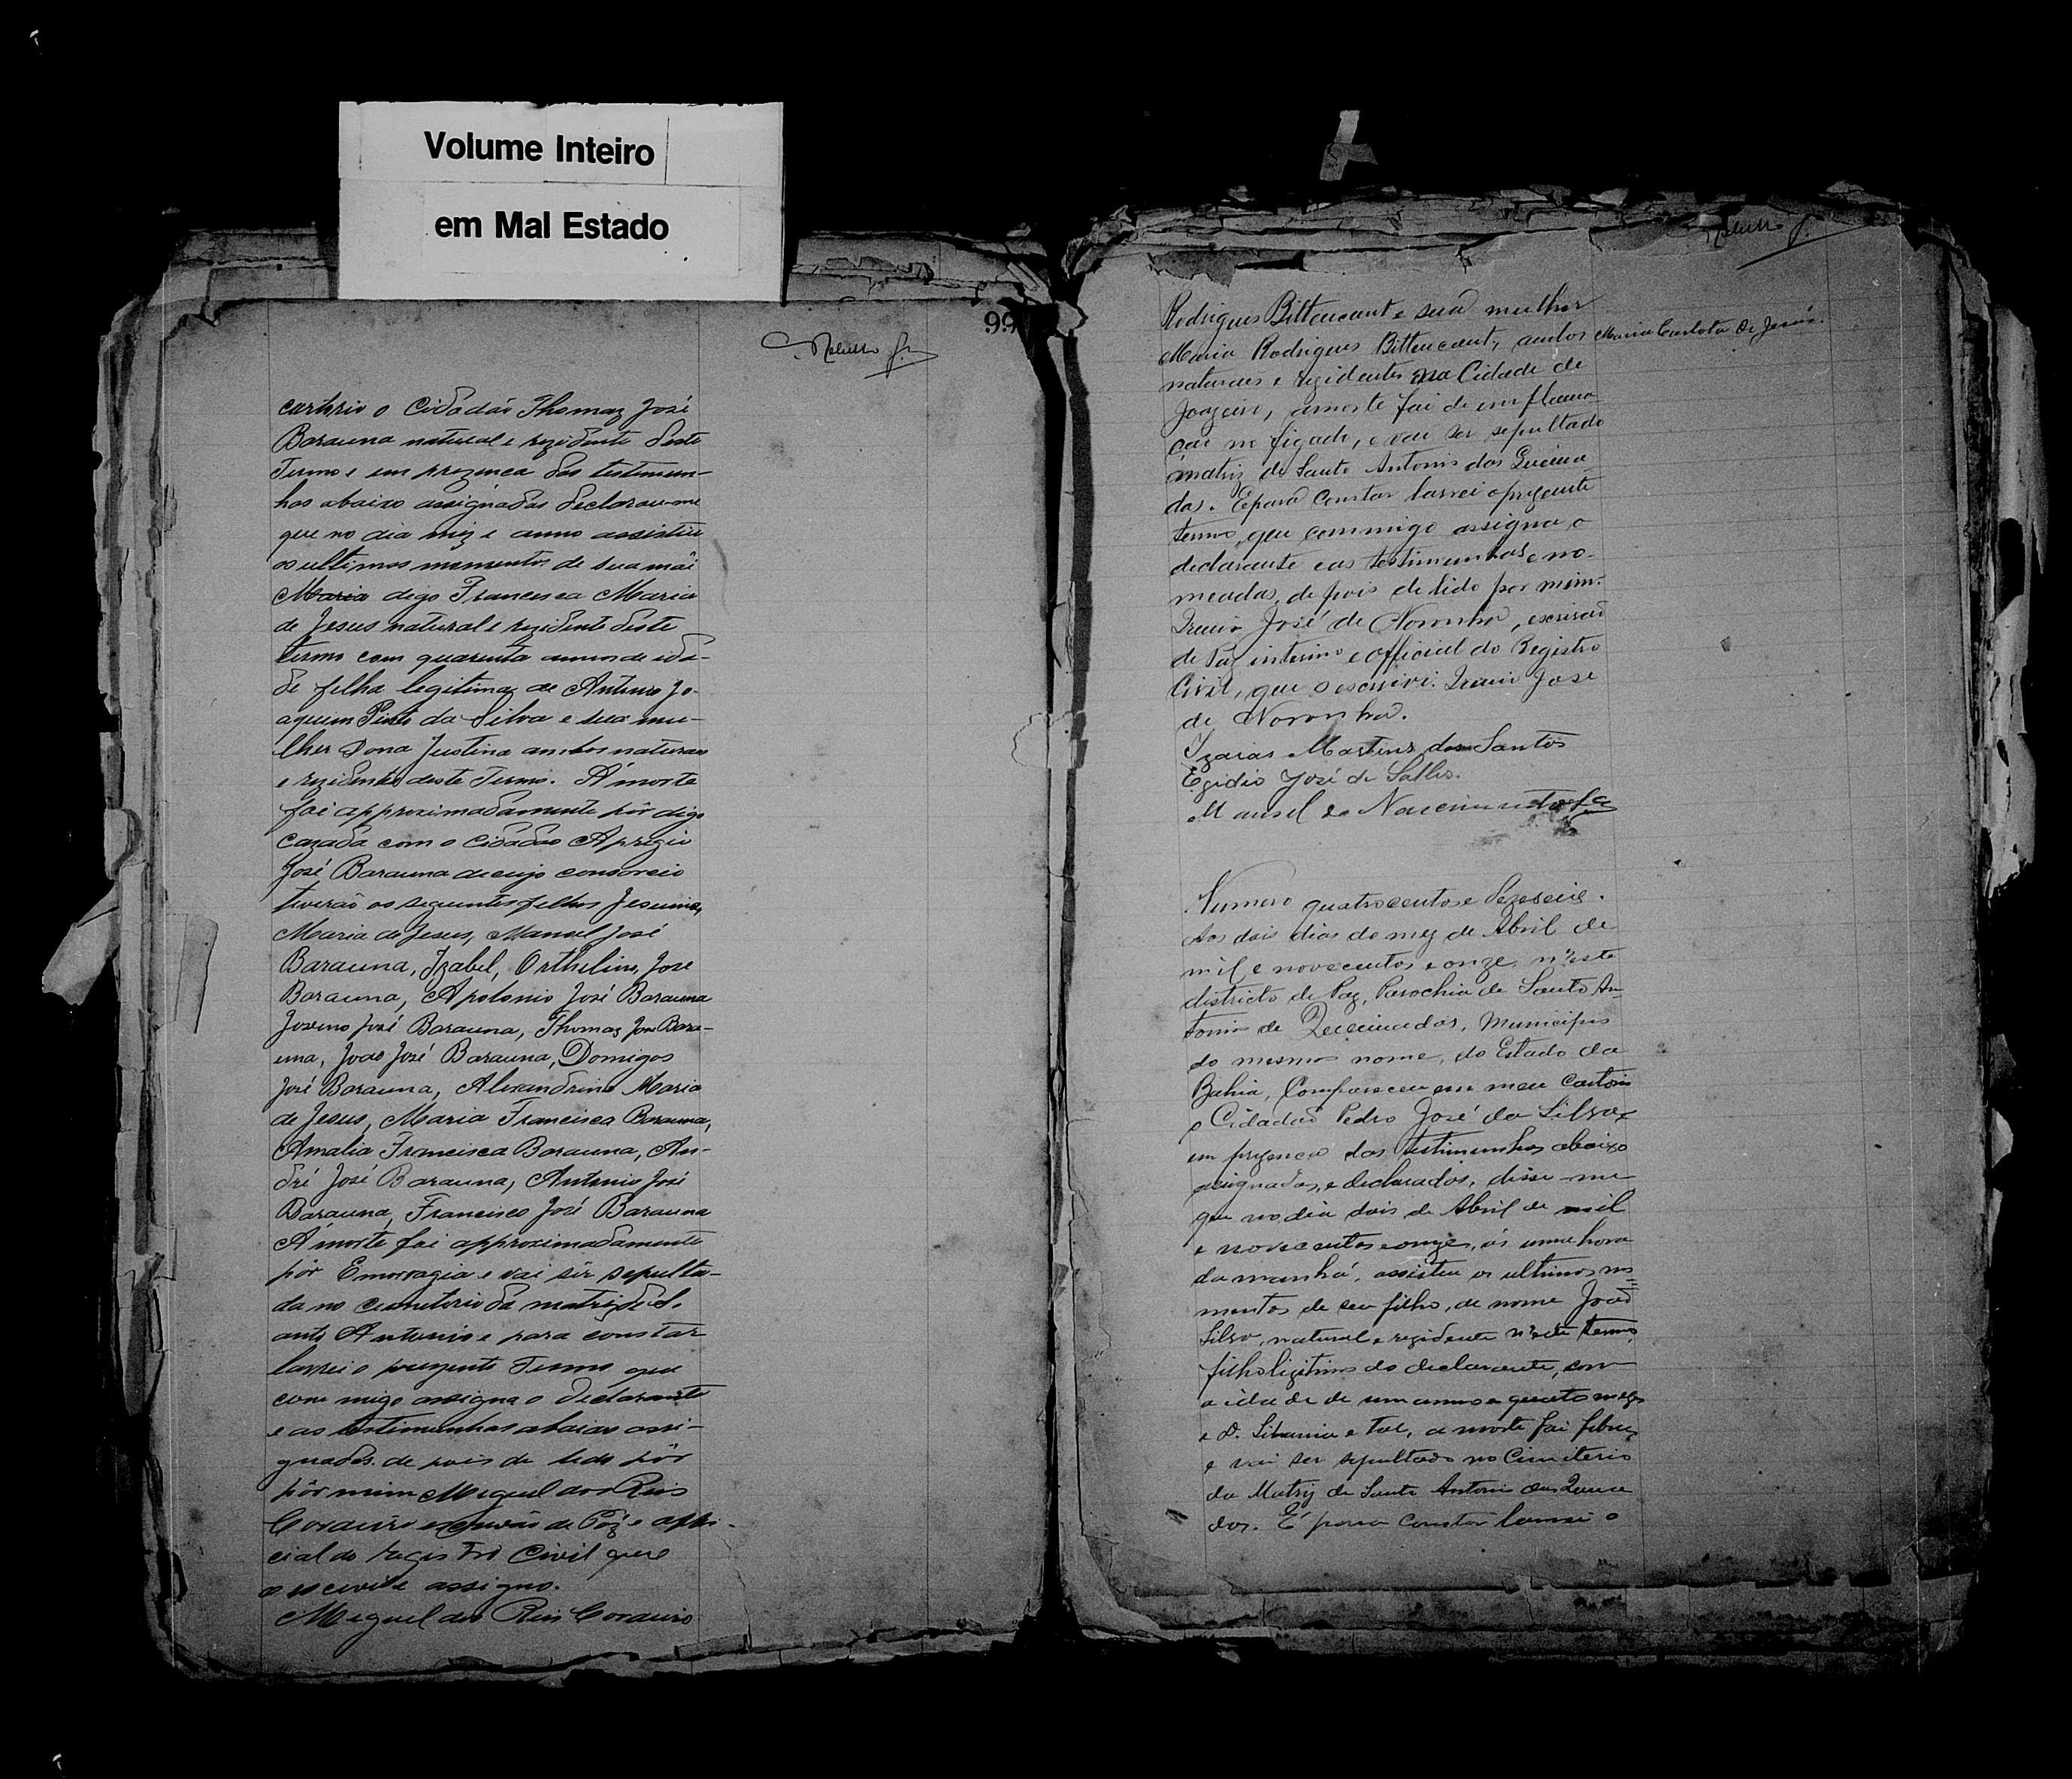 Volume Inteiro
em Mal Estado
99
cartorio o Cidadão Thomaz José
Barauna natural e rezidente deste
Termo e em prezença das testemun-
has abaixo assignadas declarou-me
que no dia mez e anno assistiu
os ultimos momentos de sua mãi
Maria digo Francisca Maria
de Jesus natural e rezidente deste
termo com quarenta annos de ida-
de filha legitima de Antonio Jo-
aquim Pinto da Silva e sua mu-
lher Dona Justina ambos naturaes
e rezidentes deste Termo. A morte
foi approximadamente pôr digo
cazada com o Cidadão Aprigio
José Barauna de cujo consorcio
tiverão os seguintes filhos Jesuina,
Maria de Jesus, Manoel José
Barauna, Izabel, Orthelino José
Barauna, Apolonio José Barauna
Josino José Barauna, Thomaz José Bara-
una, João José Barauna, Domigos
José Barauna, Alexandrina Maria
de Jesus, Maria Francisca Barauna,
Amalia Francisca Barauna, An-
dré José Barauna, Antonio José
Barauna, Francisco José Barauna
A morte foi approximadamente
pôr Emorragia e vai sêr sepulta-
da no cemiterio da matriz de S.
anto Antonio e para constar
lavrei o prezente Termo que
com migo assigna o declarante
e as testimunhas abaixo assi-
gnadas de pois de lido pôr
pôr mim Miguel dos Reis
Cordeiro escrivão de Páz e offi-
cial do registro Civil que
o escrivi e assigno.
Miguel dos Reis Cordeiro
Rodrigues Bittencourt e sua mulher
Maria Rodrigues Bittencourt, ambos
Maria Carlota de Jesus.
naturaes e rezidentes na Cidade de
Joazeiro, a morte foi de emflama-
ção no figado, e vai ser sepultado
a matriz de Santo Antonio das Queima-
das. E para constar lavrei o prezente
termo, que commigo assigna o
declarante e as testimunhas no-
meadas, de pois de lido por mim.
Irenio José de Noronha, escrivão
de Paz interino e official do Registro
Civil, que o escrivi. Irenio José
de Noronha.
Izaias Martins dos Santos
Egidio José de Salles.
Manoel do Nascimento
Numero quatrocentos e dezeseis.
Aos dois dias do mez de Abril de
mil e novecentos e onze, n'este
districto de Paz, Parochia de Santo An-
tonio de Queimadas, Municipio
do mesmo nome, do Estado da
Bahia, Compareceu em meu Cartorio
o Cidadão Pedro José da Silva, e
em prezença das testimunhas abaixo
assignadas, e declarados, disse-me
que no dia dois de Abril de mil
e novecentos e onze, ás uma hora
da manhã, assistiu os ultimos mo=
mentos de seu filho, de nome João
Silva, natural e rezidente n'este termo,
filho ligitimo do declarante, com
a idade de um anno e quatro mezes
e D. Libania e tal, a morte foi febre,
e vai ser sepultado no Cimiterio
da Matriz de Santo Antonio das Queima
das. E para constar lavrei o